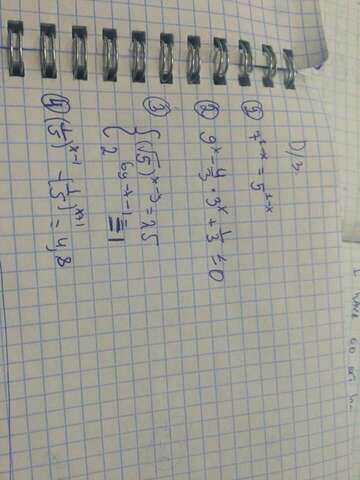 D/з
① 7^{2-x} = 5^{2-x}
② 9^x - \frac{4}{3} \cdot 3^x + \frac{1}{3} ≤ 0
③ { (\sqrt{5})^{x-y} = 25
2^{6y-x-1} = 1
④ (\frac{1}{5})^{x-1} - (\frac{1}{5})^{x+1} = 4,8